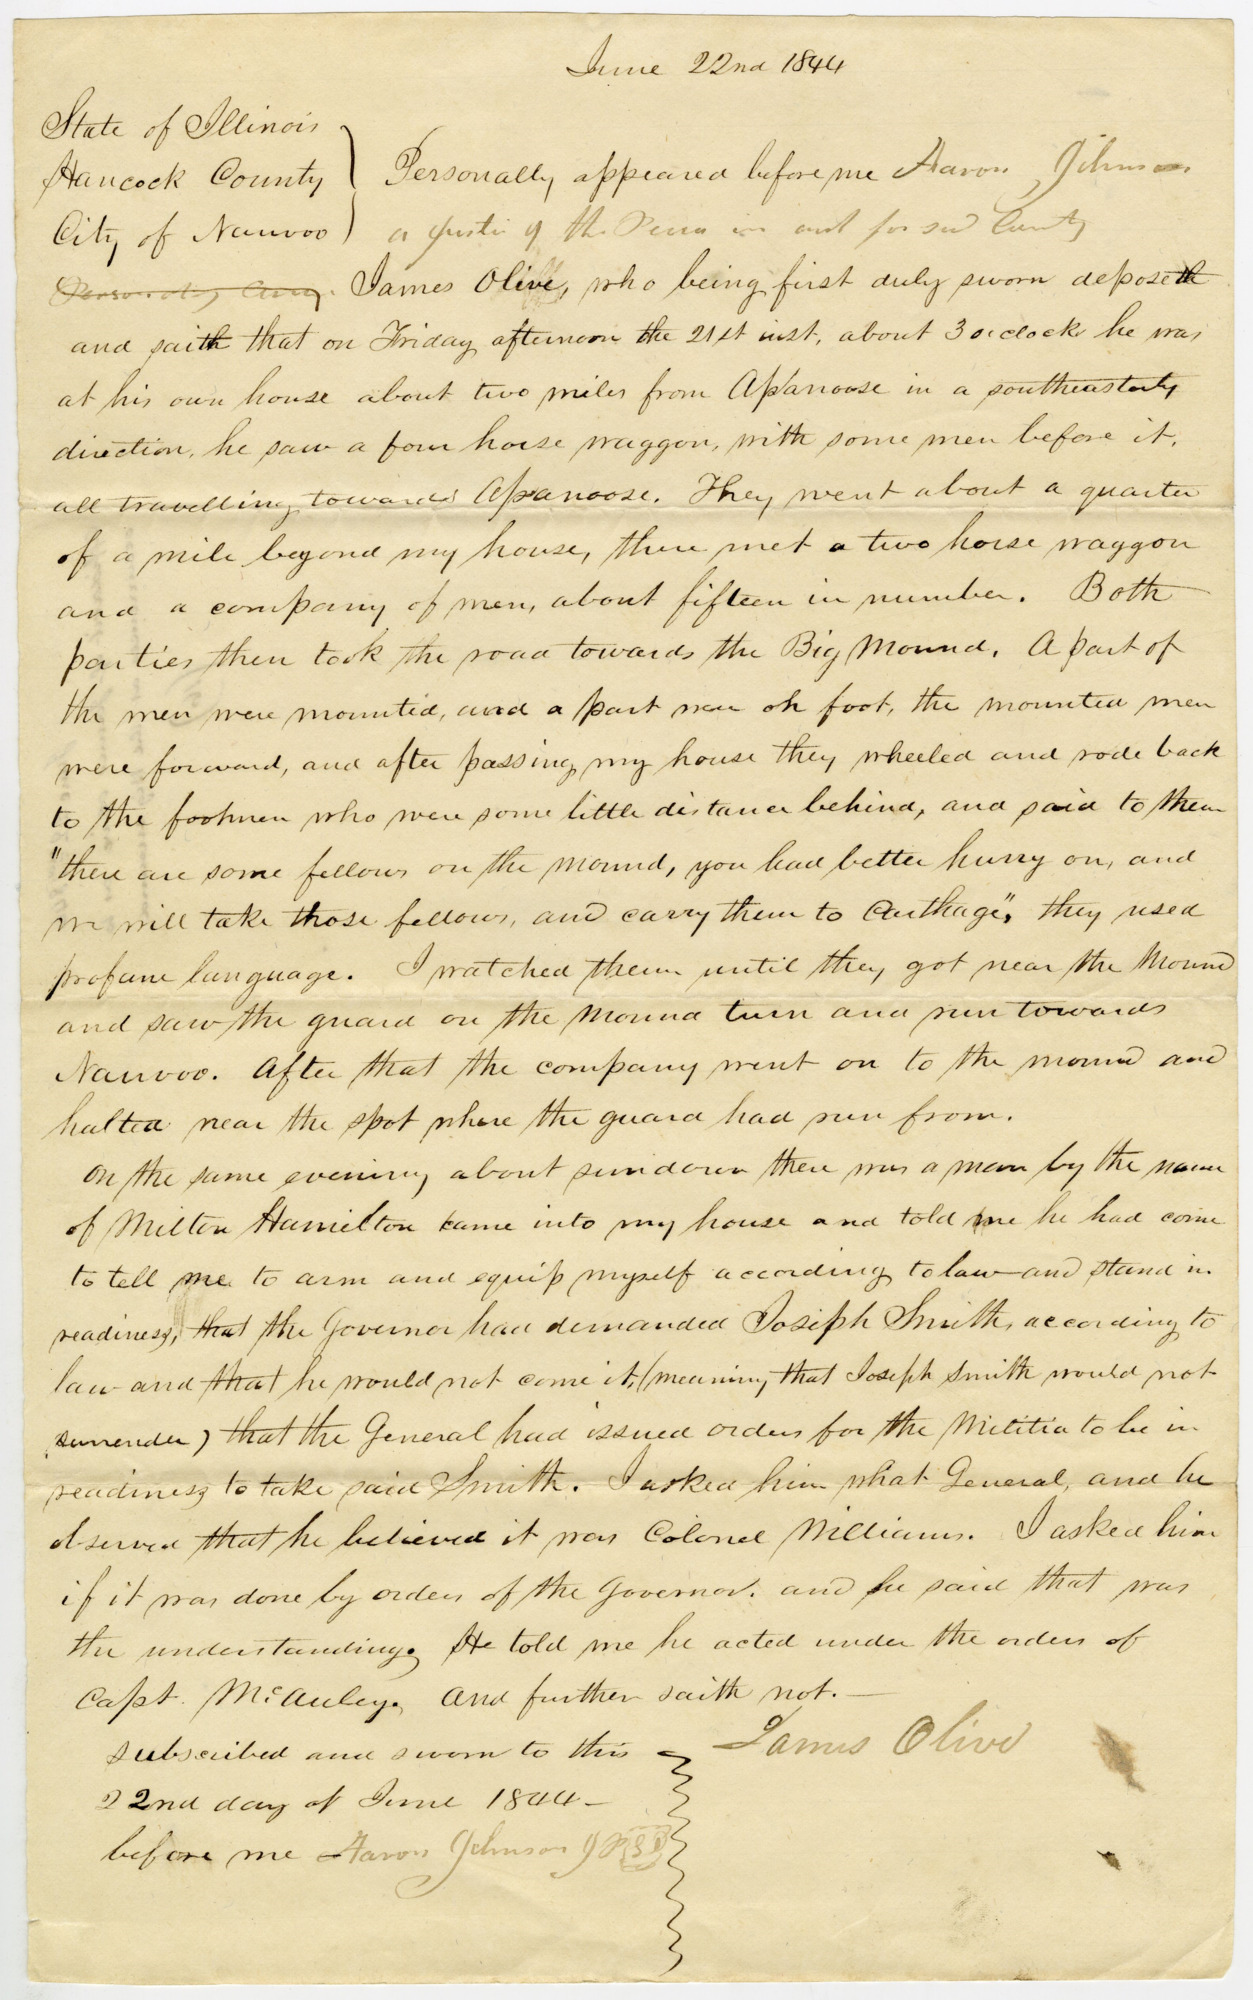 June 22nd 1844
State of Illinois
Hancock County } Personally appeared before me Aaron Johnson
City of Nauvoo a Justice of the Peace in and for said County
Personally James Olive, who being first duly sworn deposeth
and saith that on Friday afternoon the 21st inst, about 3 o'clock he was
at his own house about two miles from Apanoose in a southeasterly
direction, he saw a four horse waggon, with some men before it,
all travelling towards Apanoose. They went about a quarter
of a mile beyond my house, there met a two horse waggon
and a company of men, about fifteen in number. Both
parties then took the road towards the Big Mound. A part of
the men were mounted, and a part were on foot, the mounted men
were forward, and after passing my house they wheeled and rode back
to the footmen who were some little distance behind, and said to them
"there are some fellows on the mound, you had better hurry on, and
we will take those fellows, and carry them to Carthage", they used
profane language. I watched them until they got near the Mound
and saw the guard on the Mound turn and run towards
Nauvoo. After that the company went on to the mound and
halted near the spot where the guard had run from.
On the same evening about sundown there was a man by the name
of Milton Hamilton came into my house and told me he had come
to tell me to arm and equip myself according to law and stand in
readiness, that the Governor had demanded Joseph Smith, according to
law and that he would not come it, (meaning that Joseph Smith would not
surrender) that the General had issued orders for the Militia to be in
readiness to take said Smith. I asked him what General, and he
observed that he believed it was Colonel Williams. I asked him
if it was done by orders of the Governor. and he said that was
the understanding. He told me he acted under the orders of
Capt. McAuley. And further saith not. —
James Olive
subscribed and sworn to this
22nd day of June 1844 –
before me Aaron Johnson J P